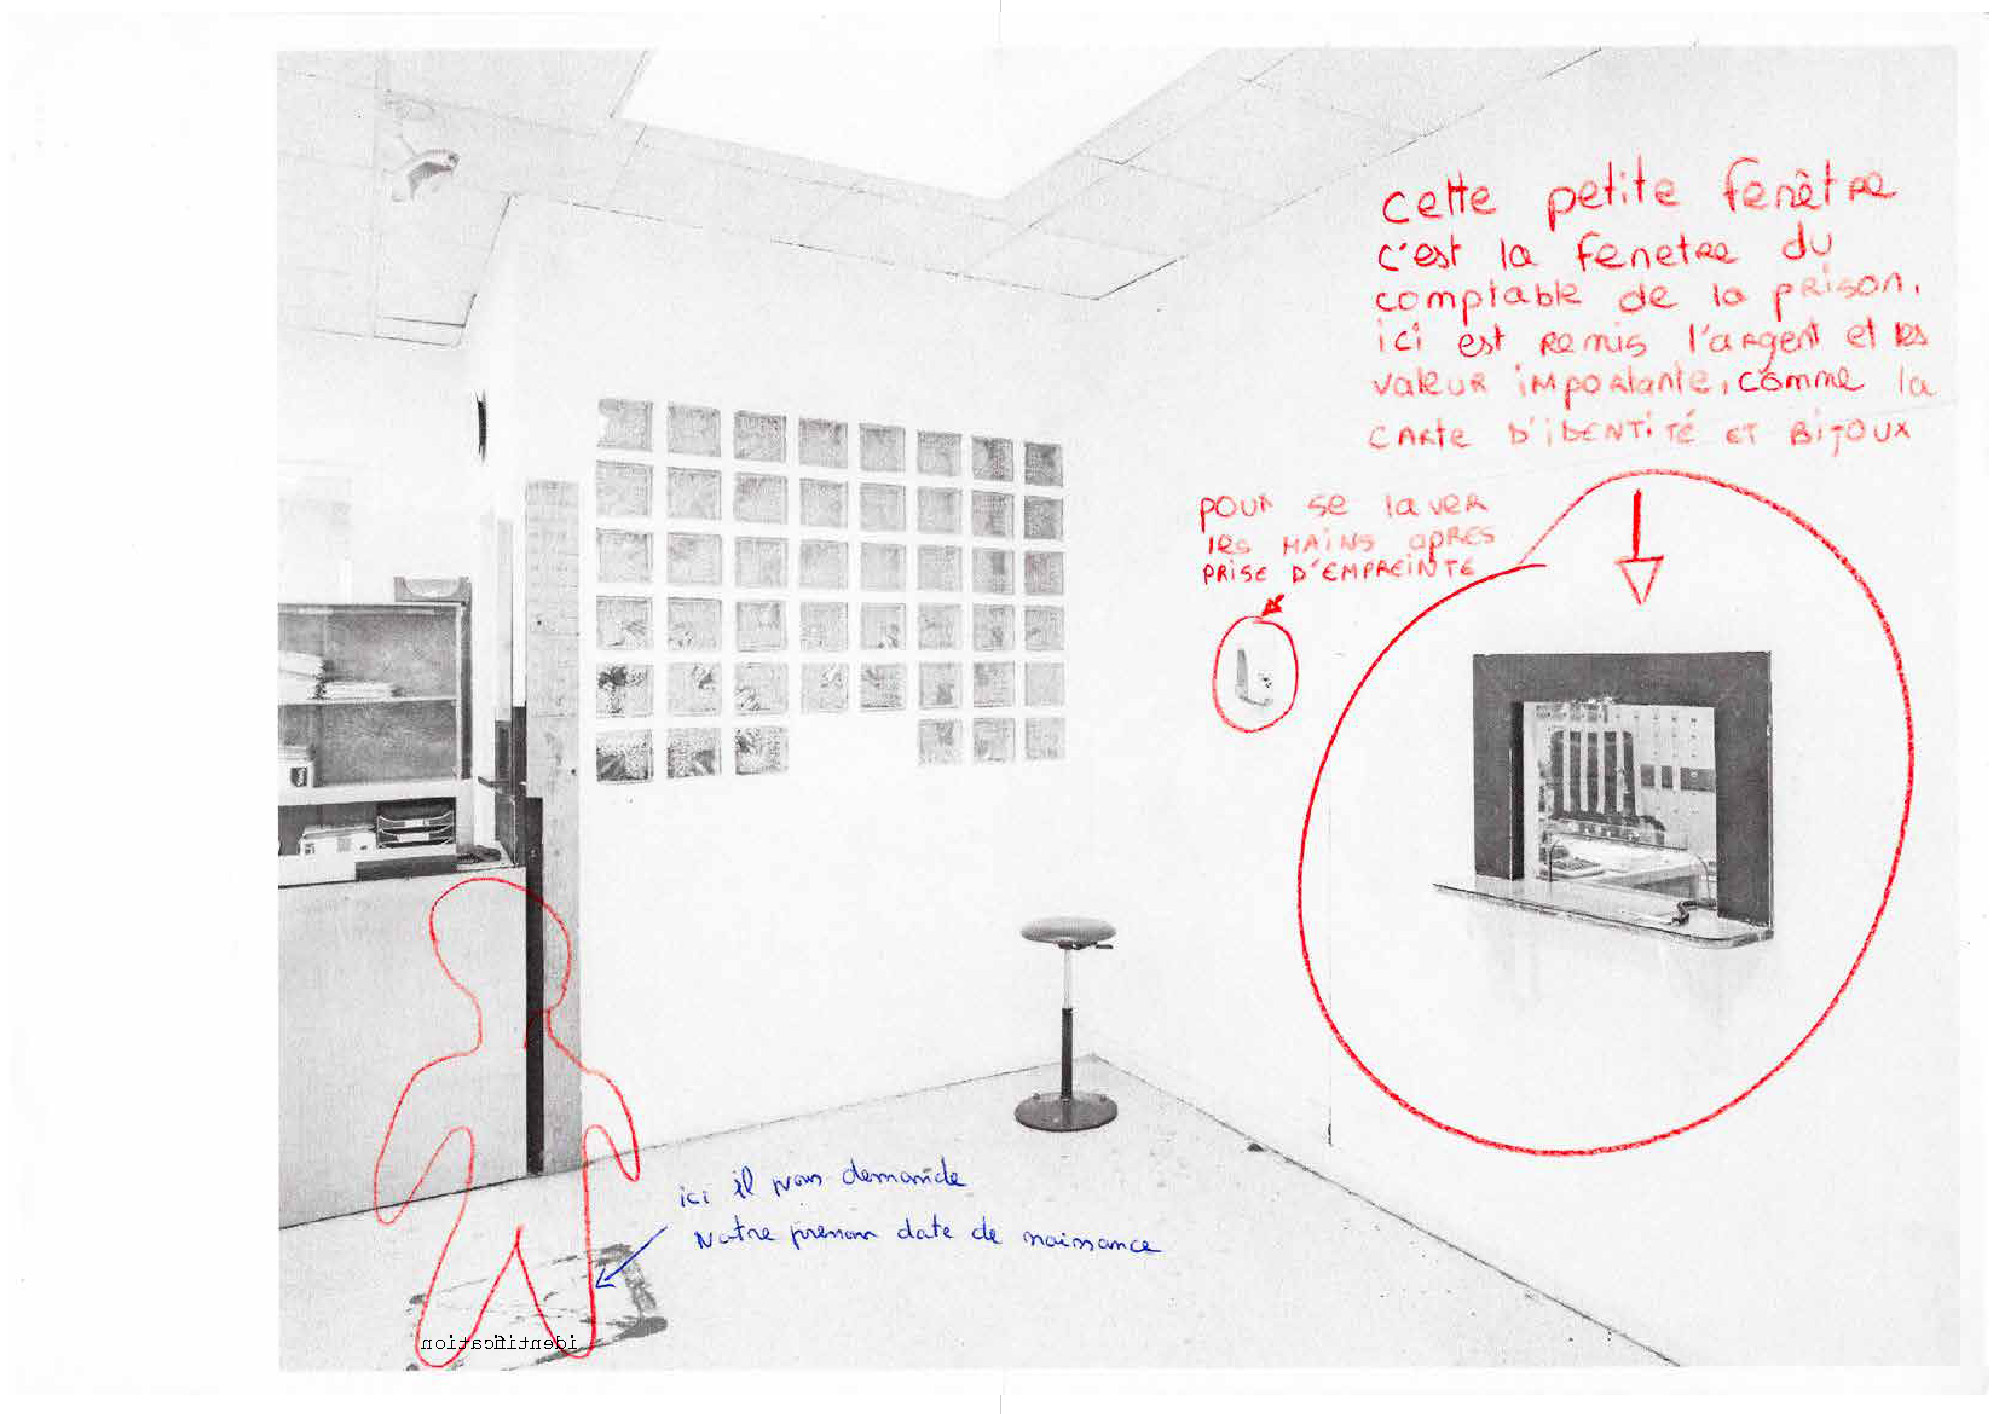 cette petite fenêtre
c'est la fenetre du
comptable de la prison.
ici est remis l'argent et les
valeur importante, comme la
CARTE D'IDENTITÉ ET BIJOUX
POUR se laver
les MAINS APRES
PRISE D'EMPREINTE
ici il nous demande
Notre prenom date de naissance
identification